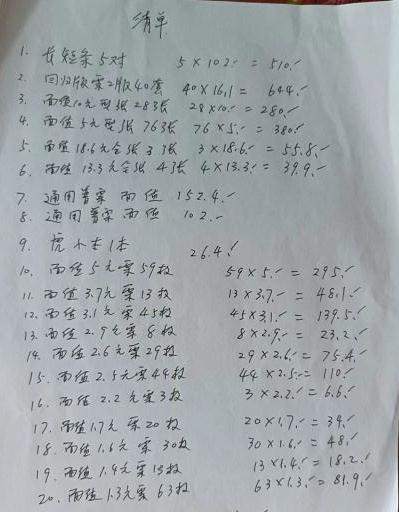 清单
1. 长短条5对 5×102.- = 510.-
2. 回归版票2版40套 40×16.1 = 644.-
3. 面值10元型张28张 28×10.- = 280.-
4. 面值5元型张76张 76×5.- = 380.-
5. 面值18.6元全张3张 3×18.6.- = 55.8.-
6. 面值13.3元全张4张 4×13.3.- = 39.9.-
7. 通用普票面值 152.4.-
8. 通用普票面值 102.-
9. 虎小本1本 26.4.-
10. 面值5元票59枚 59×5.- = 295.-
11. 面值3.7元票13枚 13×3.7.- = 48.1.-
12. 面值3.1元票45枚 45×3.1.- = 139.5.-
13. 面值2.9元票8枚 8×2.9.- = 23.2.-
14. 面值2.6元票29枚 29×2.6.- = 75.4.-
15. 面值2.5元票44枚 44×2.5.- = 110.-
16. 面值2.2元票3枚 3×2.2.- = 6.6.-
17. 面值1.7元票20枚 20×1.7.- = 34.-
18. 面值1.6元票30枚 30×1.6.- = 48.-
19. 面值1.4元票13枚 13×1.4.- = 18.2.-
20. 面值1.3元票63枚 63×1.3.- = 81.9.-